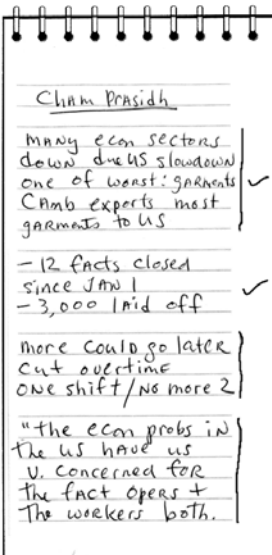 Cham Prasidh
many econ sectors
down due US slowdown
one of worst: garments
Camb exports most
garments to US
- 12 facts closed
since Jan 1
- 3,000 laid off
more could go later
cut overtime
one shift/no more 2
"the econ probs in
the US have us
v. concerned for
the fact opers +
the workers both.